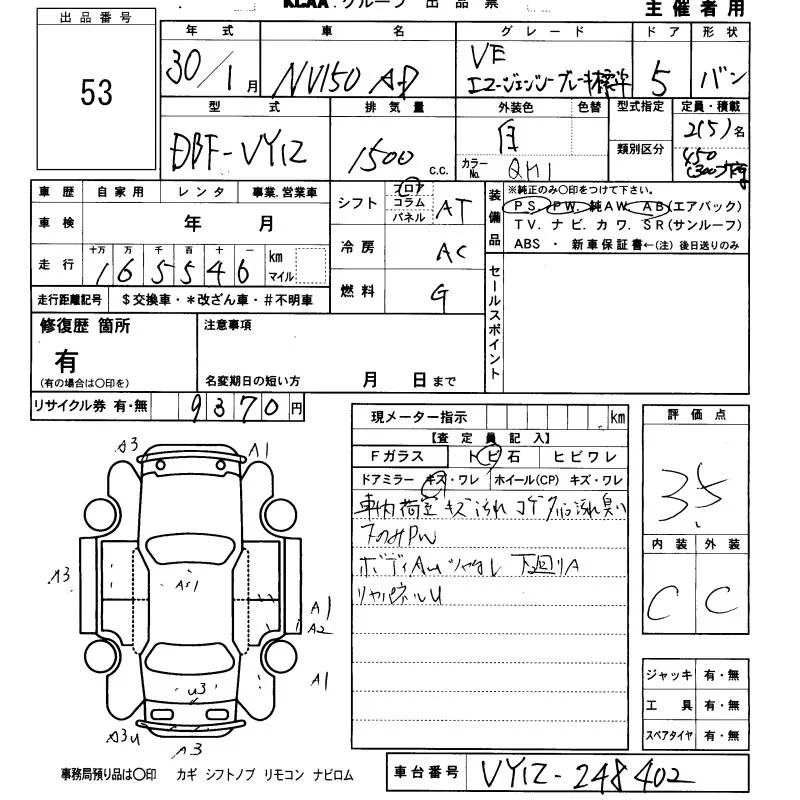 KCAA グループ 出品票
主催者用
出品番号
53
年式 車名 グレード ドア 形状
30/1月 NV150 AD VE エマージェンシーブレーキ標準 5 バン
型式 排気量 外装色 色替 型式指定 定員・積載
DBF-VY12 1500 c.c. 白 類別区分 2(5)名
カラーNo. QM1 450(300)kg
車歴 自家用 レンタ 事業.営業車
車検 年 月
走行 十万 万 千 百 十 一
165546 km マイル
走行距離記号 $交換車・*改ざん車・#不明車
シフト フロア コラム パネル AT
冷房 AC
燃料 G
装備品
※純正のみ〇印をつけて下さい。
PS. PW. 純AW. AB(エアバック)
TV. ナビ. カワ. SR(サンルーフ)
ABS ・ 新車保証書←(注) 後日送りのみ
セールスポイント
修復歴 箇所
有
(有の場合は〇印を)
注意事項
名変期日の短い方 月 日まで
リサイクル券 有・無 9370円
現メーター指示 km
【査定員記入】
Fガラス トビ石 ヒビワレ
ドアミラー キズ・ワレ ホイール(CP) キズ・ワレ
車内荷室キズ汚れ コゲ
下回りA
リヤパネルU
評価点
3.5
内装 外装
C C
ジャッキ 有・無
工具 有・無
スペアタイヤ 有・無
A3 A1
A3
A1
A2
A1
U3
A3U
A3
事務局預り品は〇印 カギ シフトノブ リモコン ナビロム
車台番号 VY12-248402